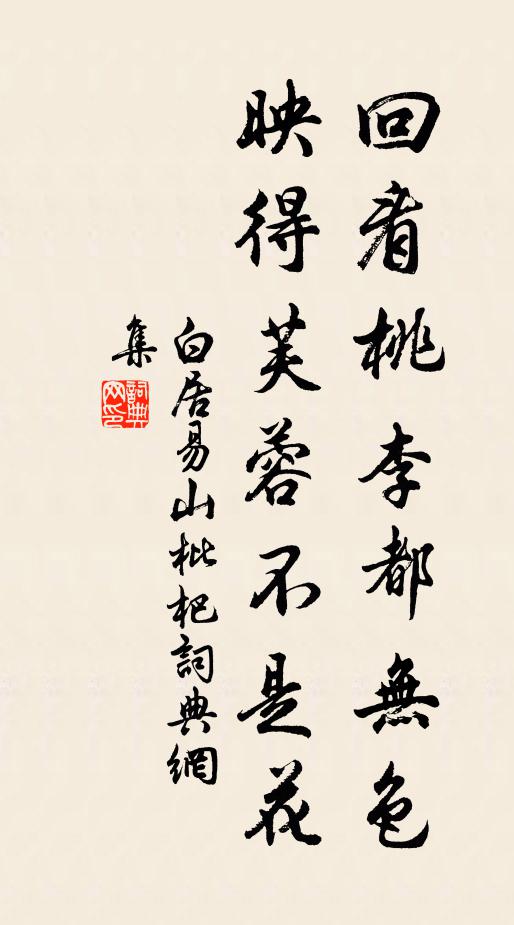 回看桃李都無色
映得芙蓉不是花
白居易山枇杷詞典網
集
詞典
网印